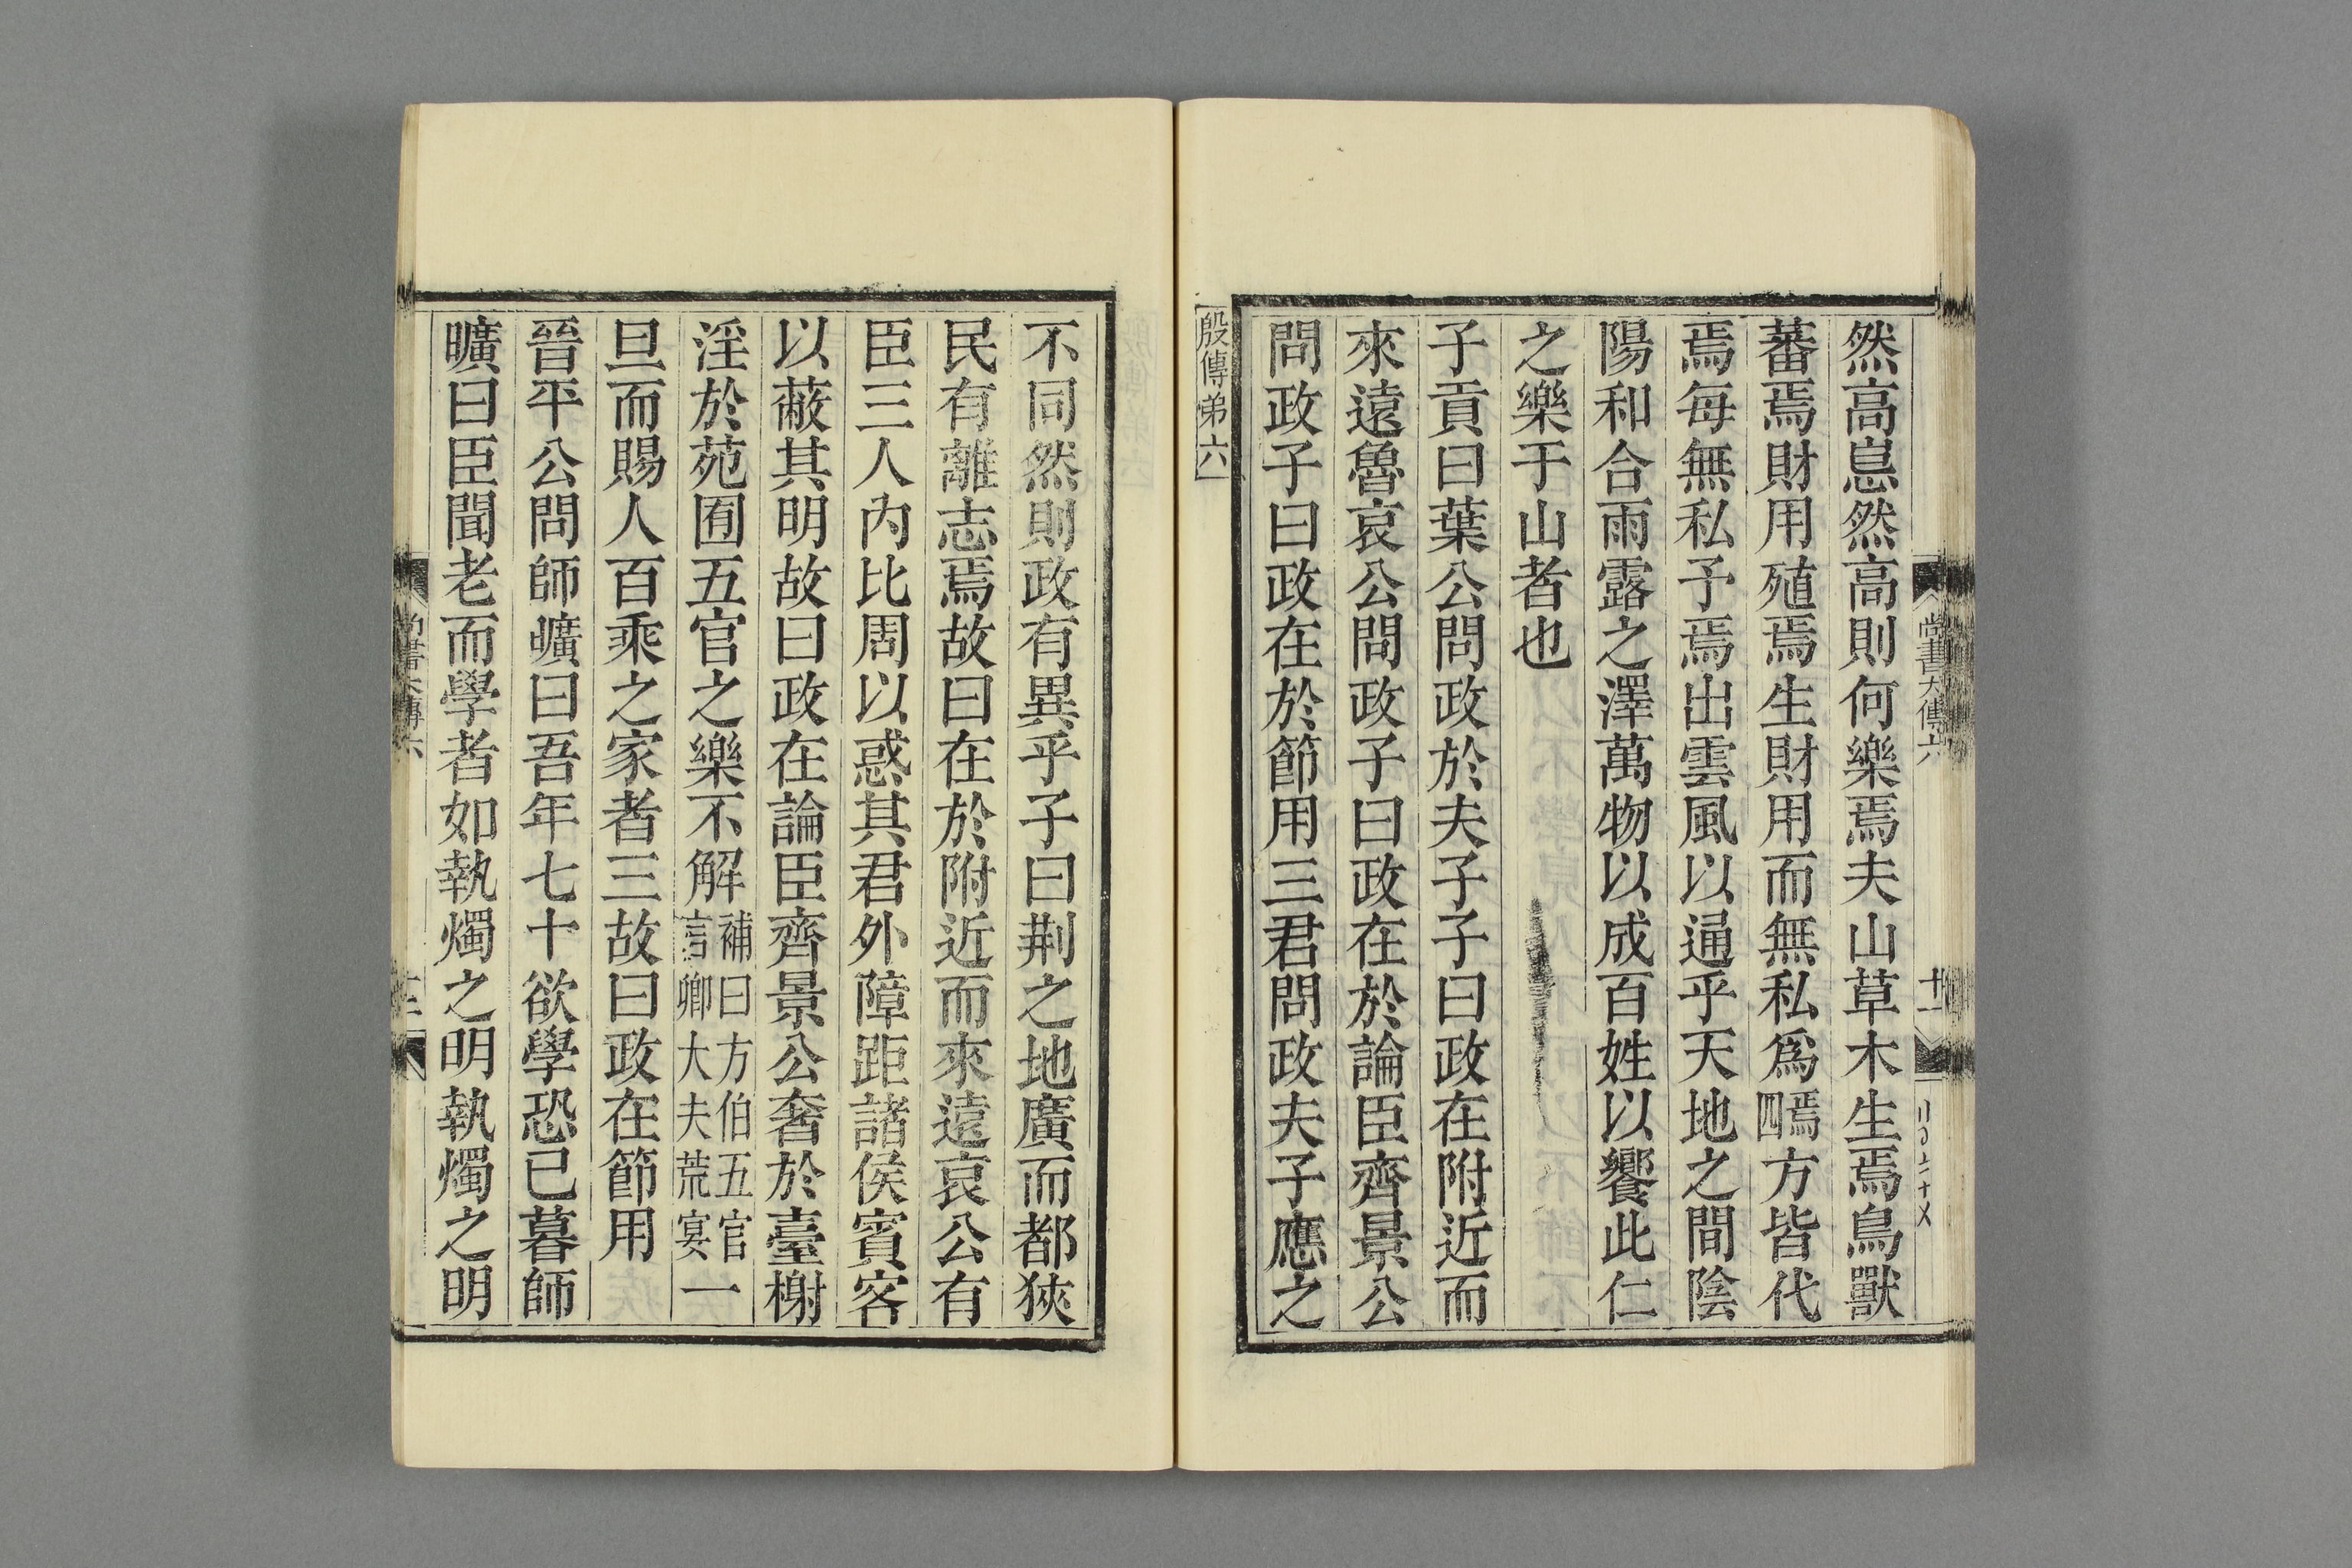 尚書大傳六
十一
然高嵬然高則何樂焉夫山草木生焉鳥獸
蕃焉財用殖焉生財用而無私爲焉四方皆代
焉每無私予焉出雲風以通乎天地之間陰
陽和合雨露之澤萬物以成百姓以饗此仁
之樂于山者也
子貢曰葉公問政於夫子子曰政在附近而
來遠魯哀公問政子曰政在於論臣齊景公
問政子曰政在於節用三君問政夫子應之
殷傳弟六
不同然則政有異乎子曰荆之地廣而都狹
民有離志焉故曰在於附近而來遠哀公有
臣三人內比周以惑其君外障距諸侯賓客
以蔽其明故曰政在論臣齊景公奢於臺榭
淫於苑囿五官之樂不解補曰方伯五官言卿大夫荒宴一
旦而賜人百乘之家者三故曰政在節用
晉平公問師曠曰吾年七十欲學恐已暮師
曠曰臣聞老而學者如執燭之明執燭之明